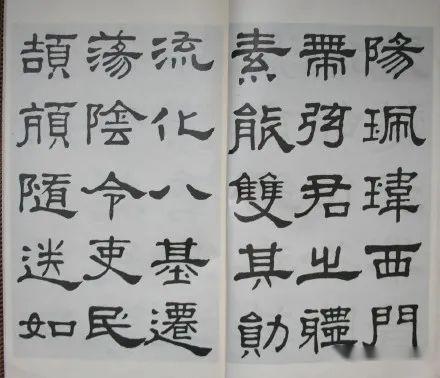 陽珮瑋西門
帶弦君之體
素能雙其勛
流化八基遷
蕩陰令吏民
頡頏隨送如